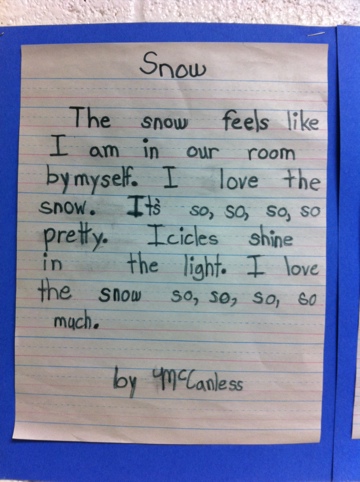 Snow
The snow feels like
I am in our room
by myself. I love the
snow. It's so, so, so, so
pretty. Icicles shine
in the light. I love
the snow so, so, so, so
much.
by McCanless